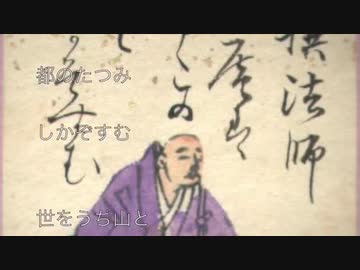 撰法師
庵は
都のたつみ
しかぞすむ
世をうぢ山と